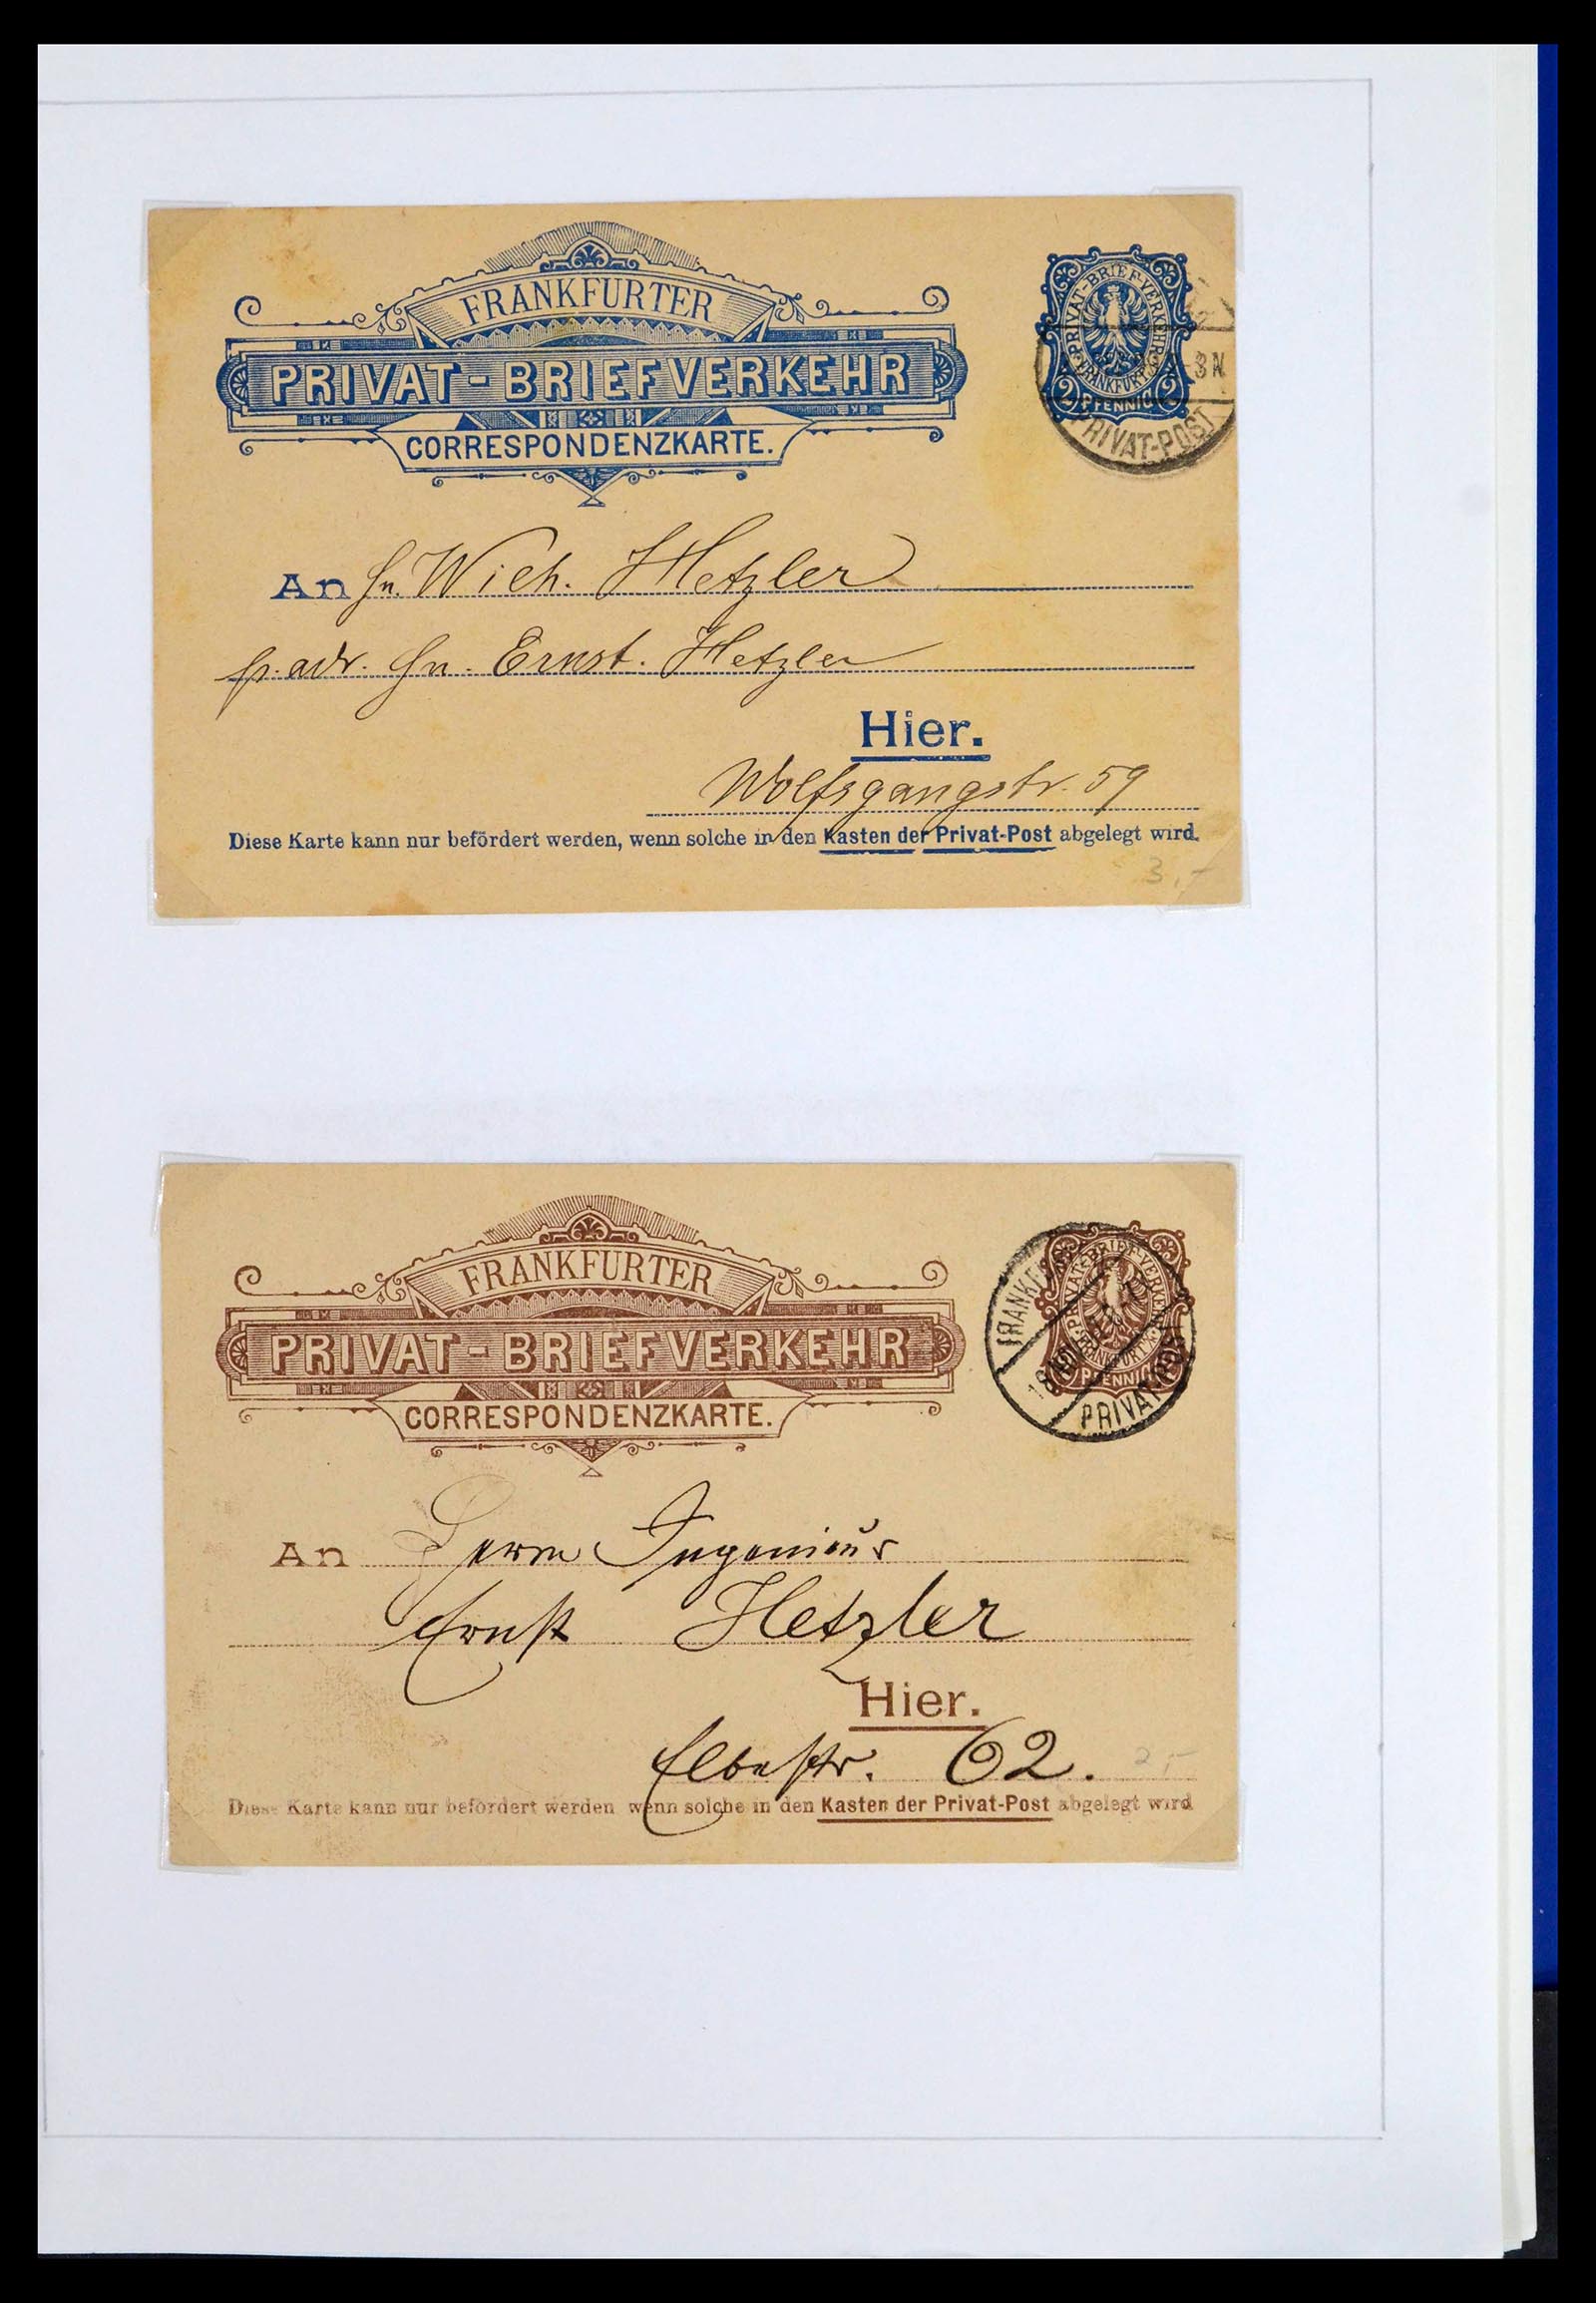 FRANKFURTER
PRIVAT-BRIEFVERKEHR
CORRESPONDENZKARTE.
PRIVAT-BRIEF-VERKEHR
FRANKFURT
2 PFENNIG 2
3 N
PRIVAT-POST
An Hn. Wich. Hetzler
p. adr. Hn. Ernst. Hetzler
Hier.
Wolfsgangstr. 59
Diese Karte kann nur befördert werden, wenn solche in den Kasten der Privat-Post abgelegt wird.
3,-
FRANKFURTER
PRIVAT-BRIEFVERKEHR
CORRESPONDENZKARTE.
PRIVAT-BRIEF-VERKEHR
FRANKFURT
PFENNIG
PRIVAT-POST
An Herrn Ingenieur
Ernst Hetzler
Hier.
Elbestr. 62.
2,-
Diese Karte kann nur befördert werden wenn solche in den Kasten der Privat-Post abgelegt wird